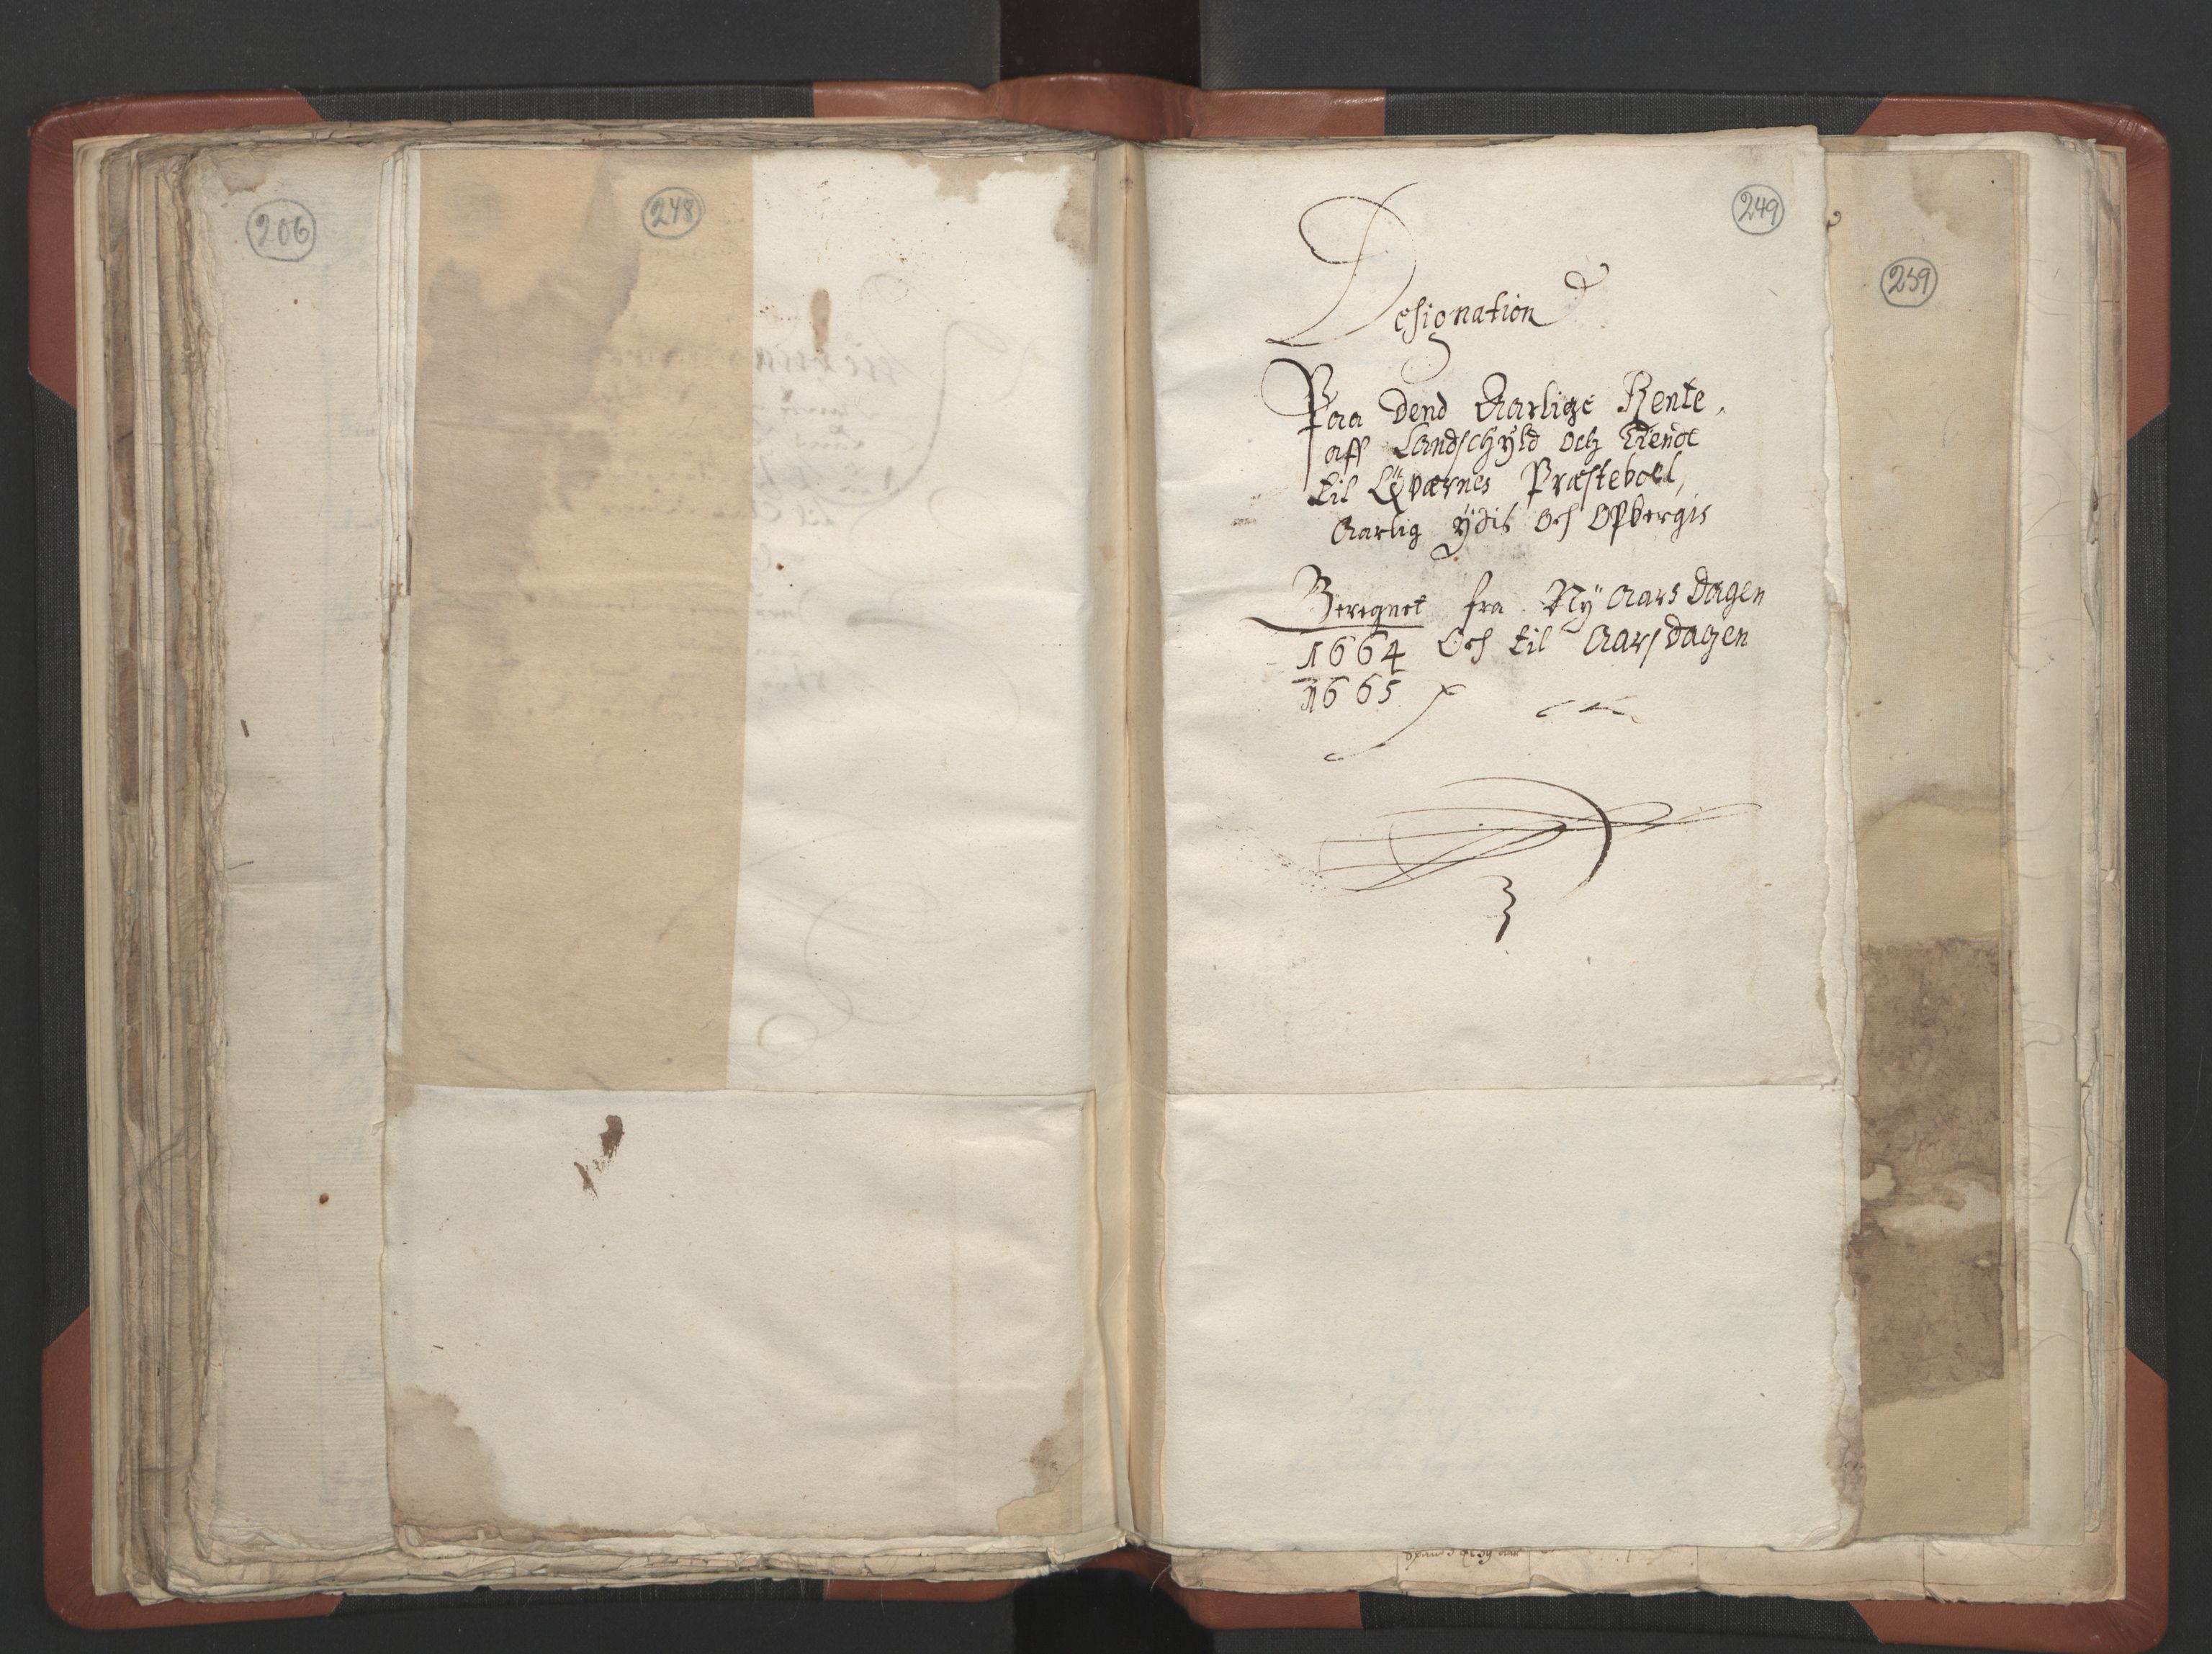 206
248
249
259
Designation
Paa dend Aarlige Rente,
aff Landschÿld och Tiende
til Qværnes Præsteboel,
Aarlig ÿdis Och Opbergis
Beregnet fra Nÿ Aars dagen
1664 Och til Aarsdagen
1665